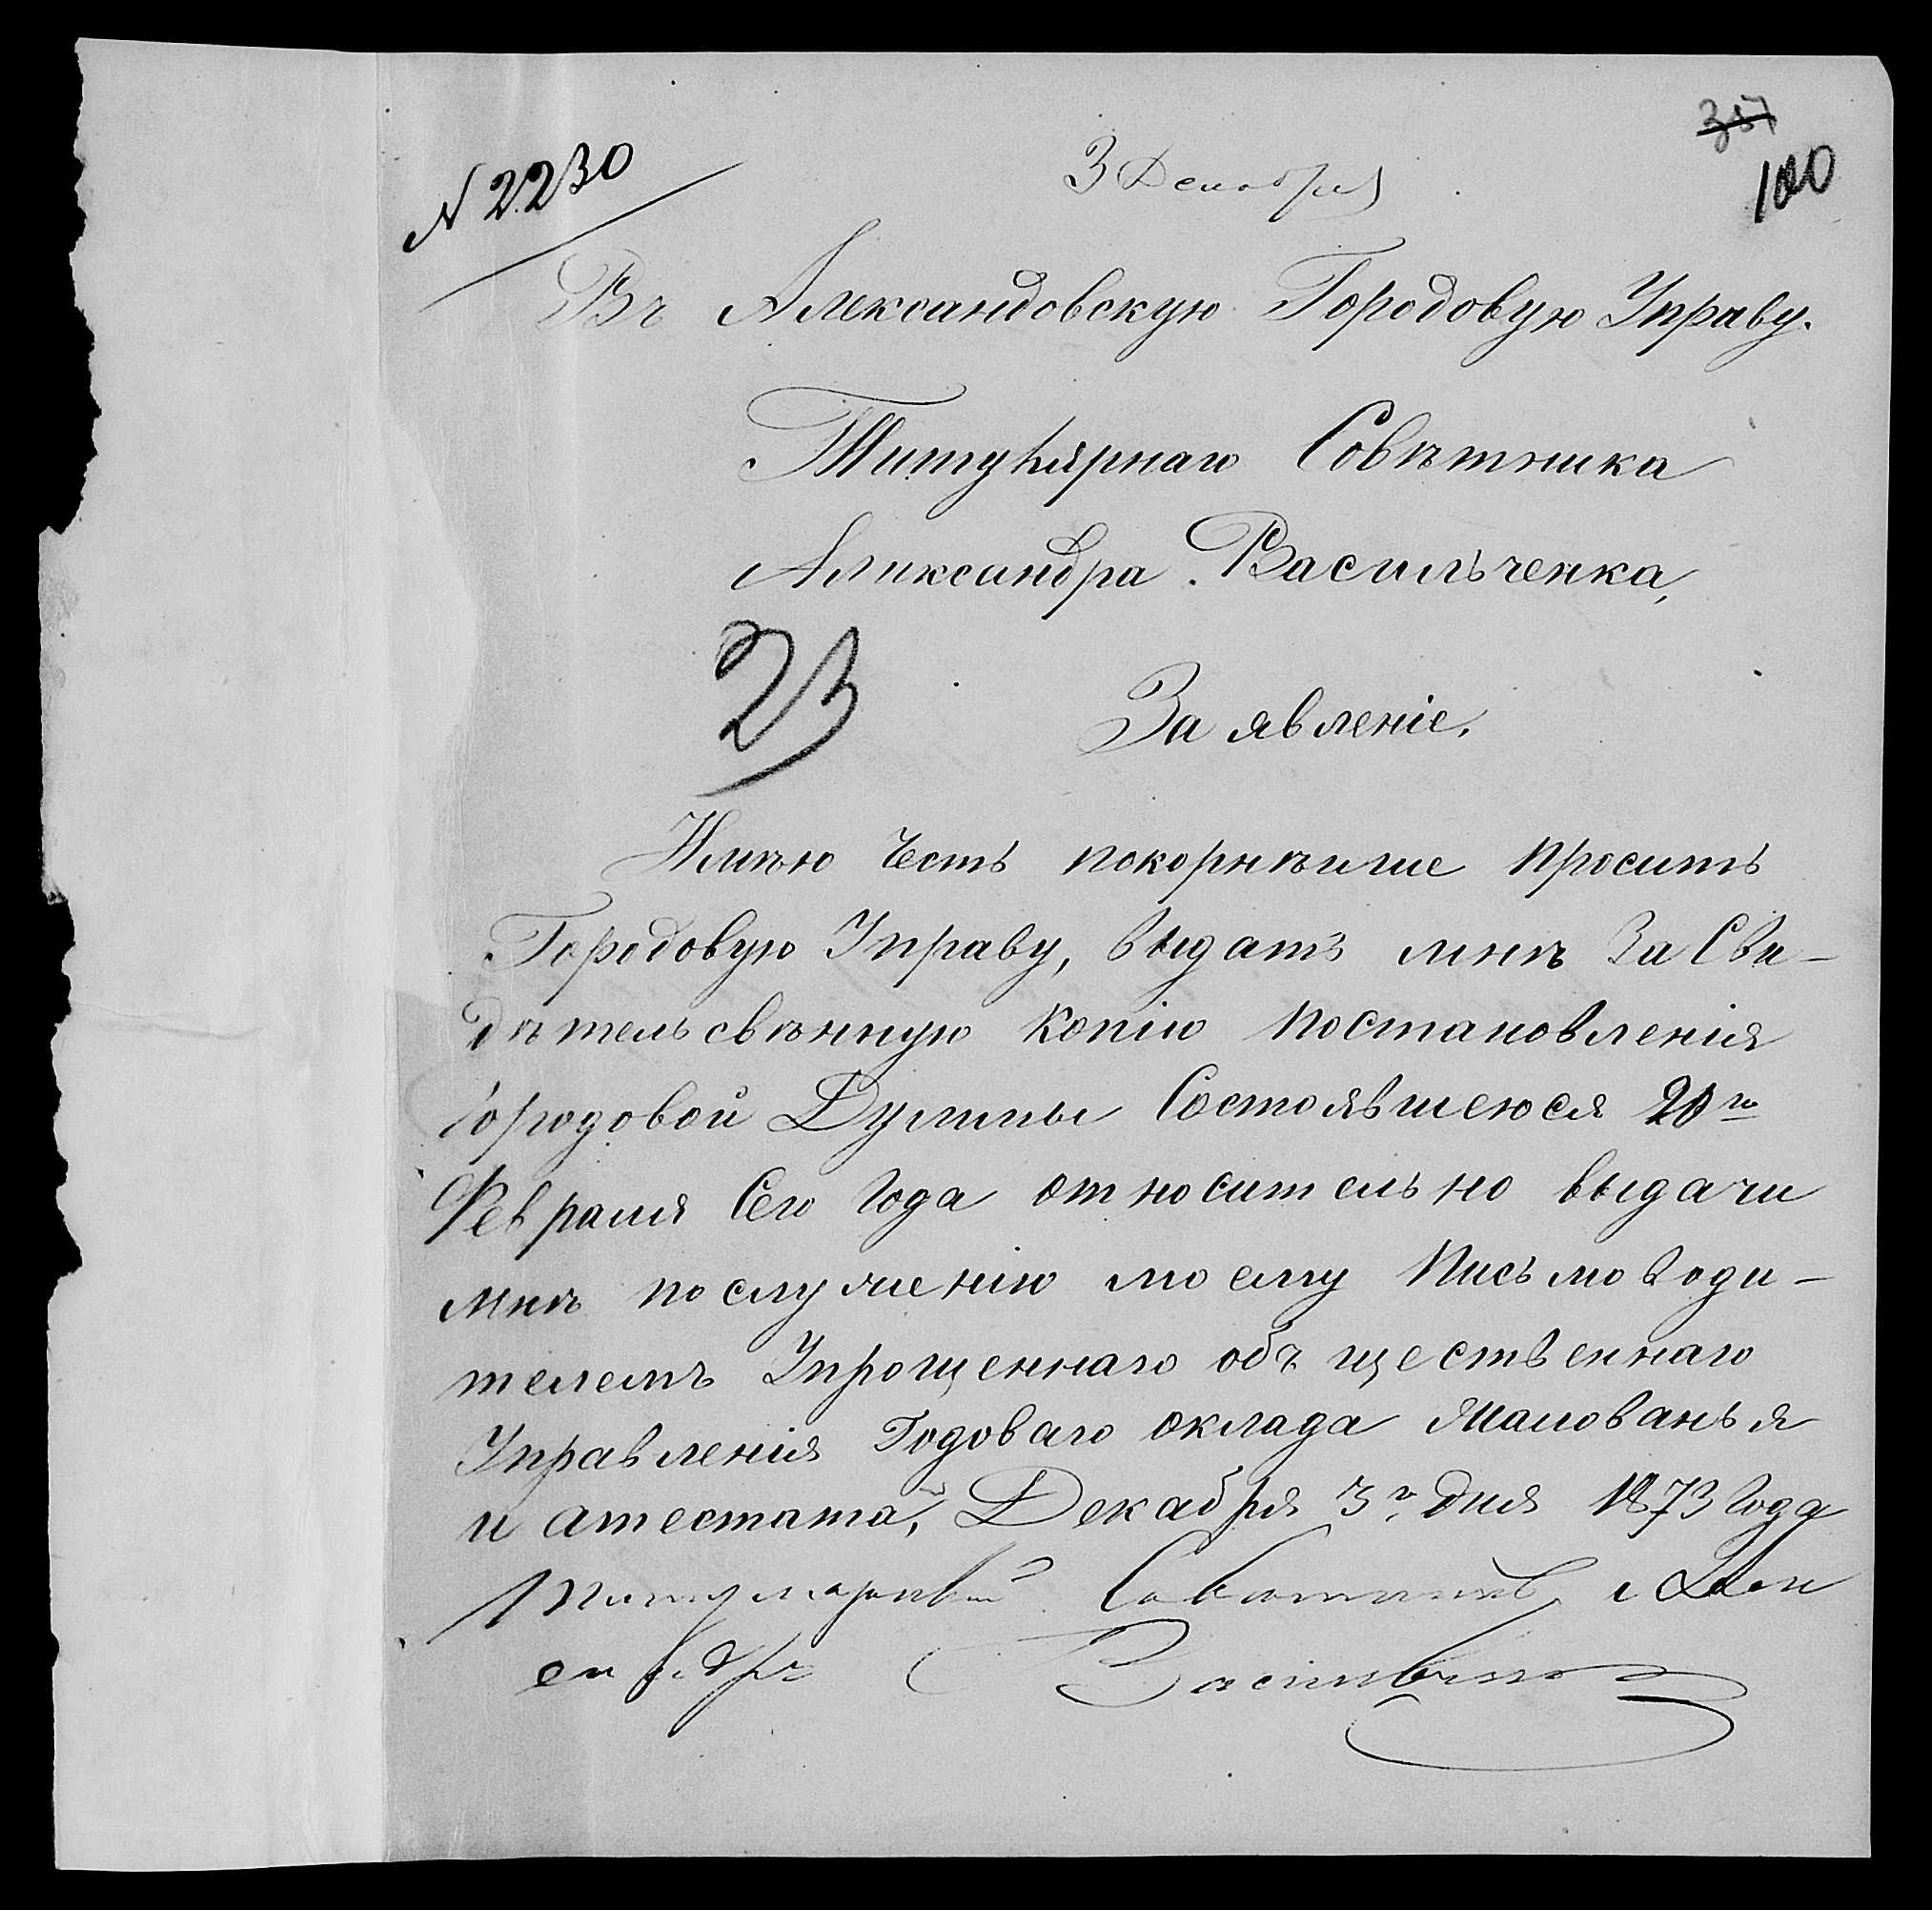 357
100
N 2230
3 Декабря
Въ Александовскую Городовую Управу.
Титулярнаго Совѣтника
Александра Васильченка,
23
Заявленіе.
Имѣю Честь покорнѣише просить
Городовую Управу, выдать мнѣ За Сви-
дѣтельсвѣнную копію постановленія
Городовой Думмы Состоявшеюся 20го
Февраля Сего Года относительно выдачи
мнѣ послуженію моему Письмоводи-
телемъ Упрощеннаго объщественнаго
Управленія Годоваго оклада Жалованья
и атестата, Декабря 3го дня 1873 Года
Титулярный Советникъ Алек
сандръ Васильченко